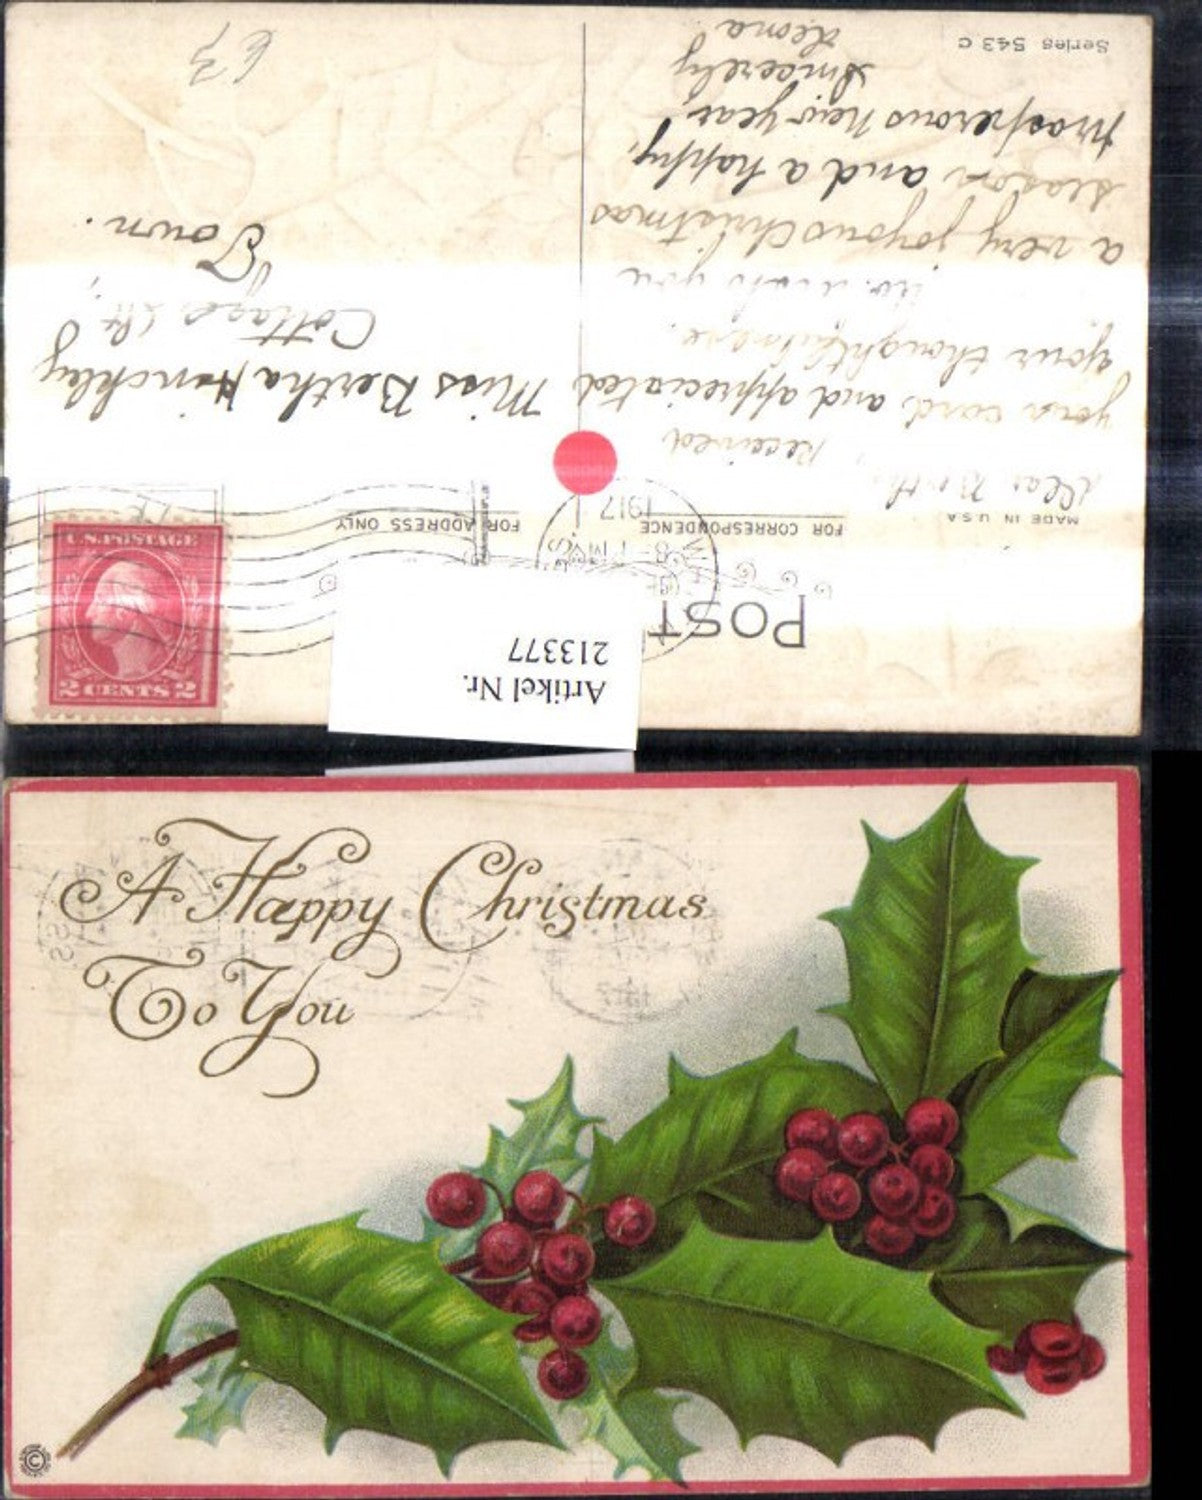 POST
MADE IN U.S.A.
FOR CORRESPONDENCE
FOR ADDRESS ONLY
1917
Received
your card and appreciated
your thoughtfulness.
wish you
a very joyous Christmas
season and a happy,
prosperous New year,
Sincerely
Leona
Series 543 C
Miss Bertha Hinckley
Cottage St.,
Town.
U.S. POSTAGE
2 CENTS 2
Artikel Nr.
213377
A Happy Christmas
To You
©